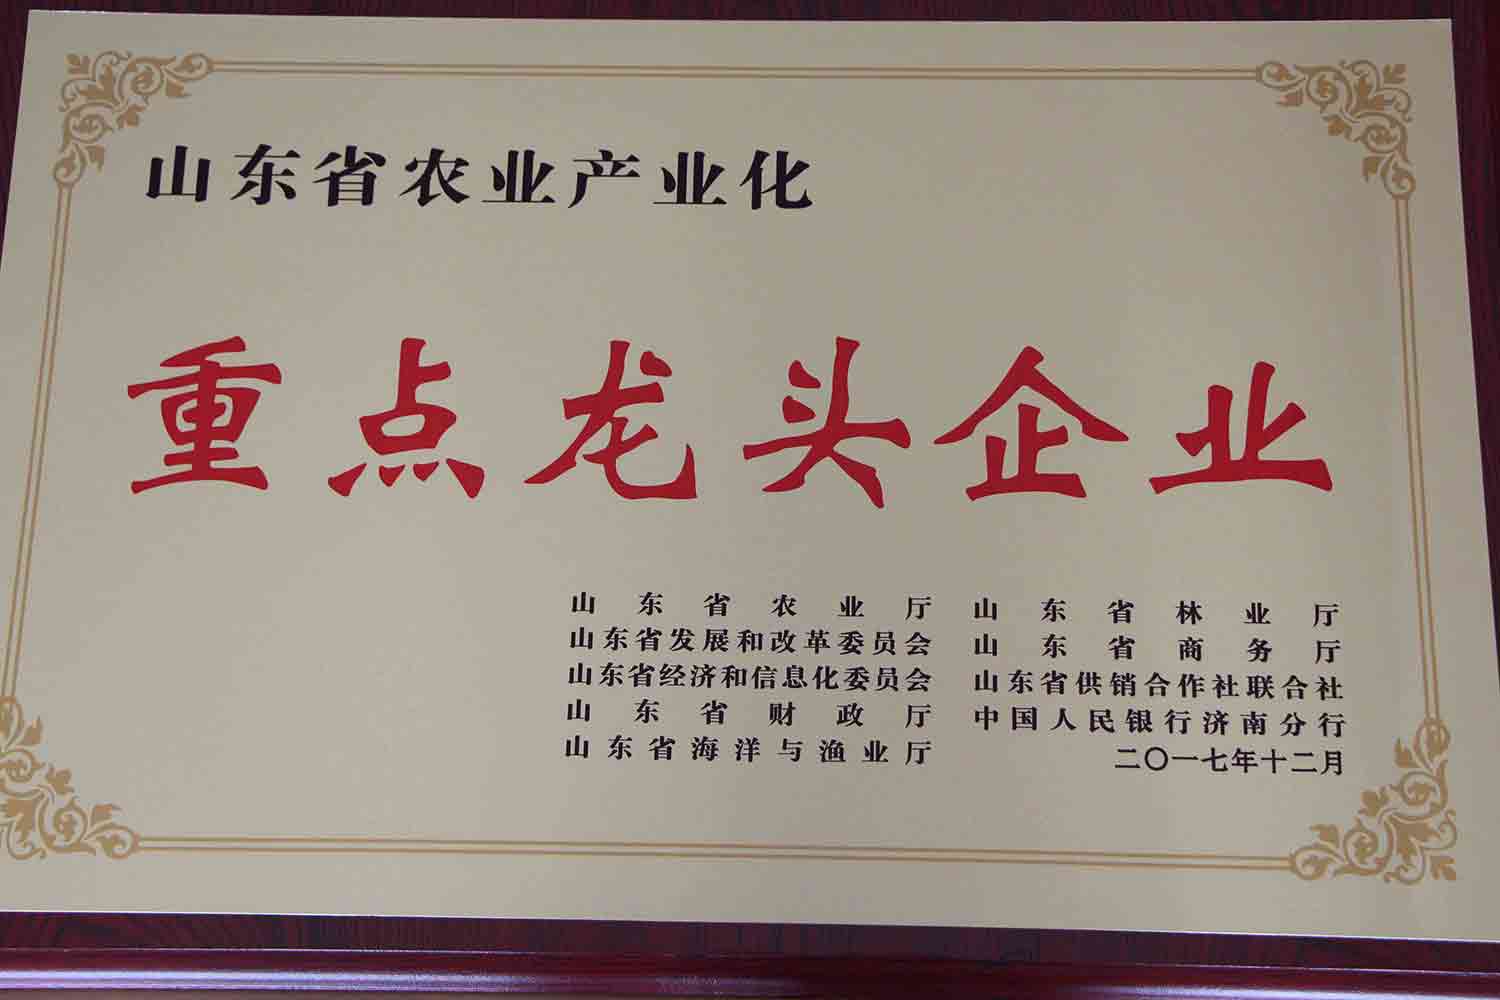 山东省农业产业化
重点龙头企业
山东省农业厅
山东省发展和改革委员会
山东省经济和信息化委员会
山东省财政厅
山东省海洋与渔业厅
山东省林业厅
山东省商务厅
山东省供销合作社联合社
中国人民银行济南分行
二〇一七年十二月